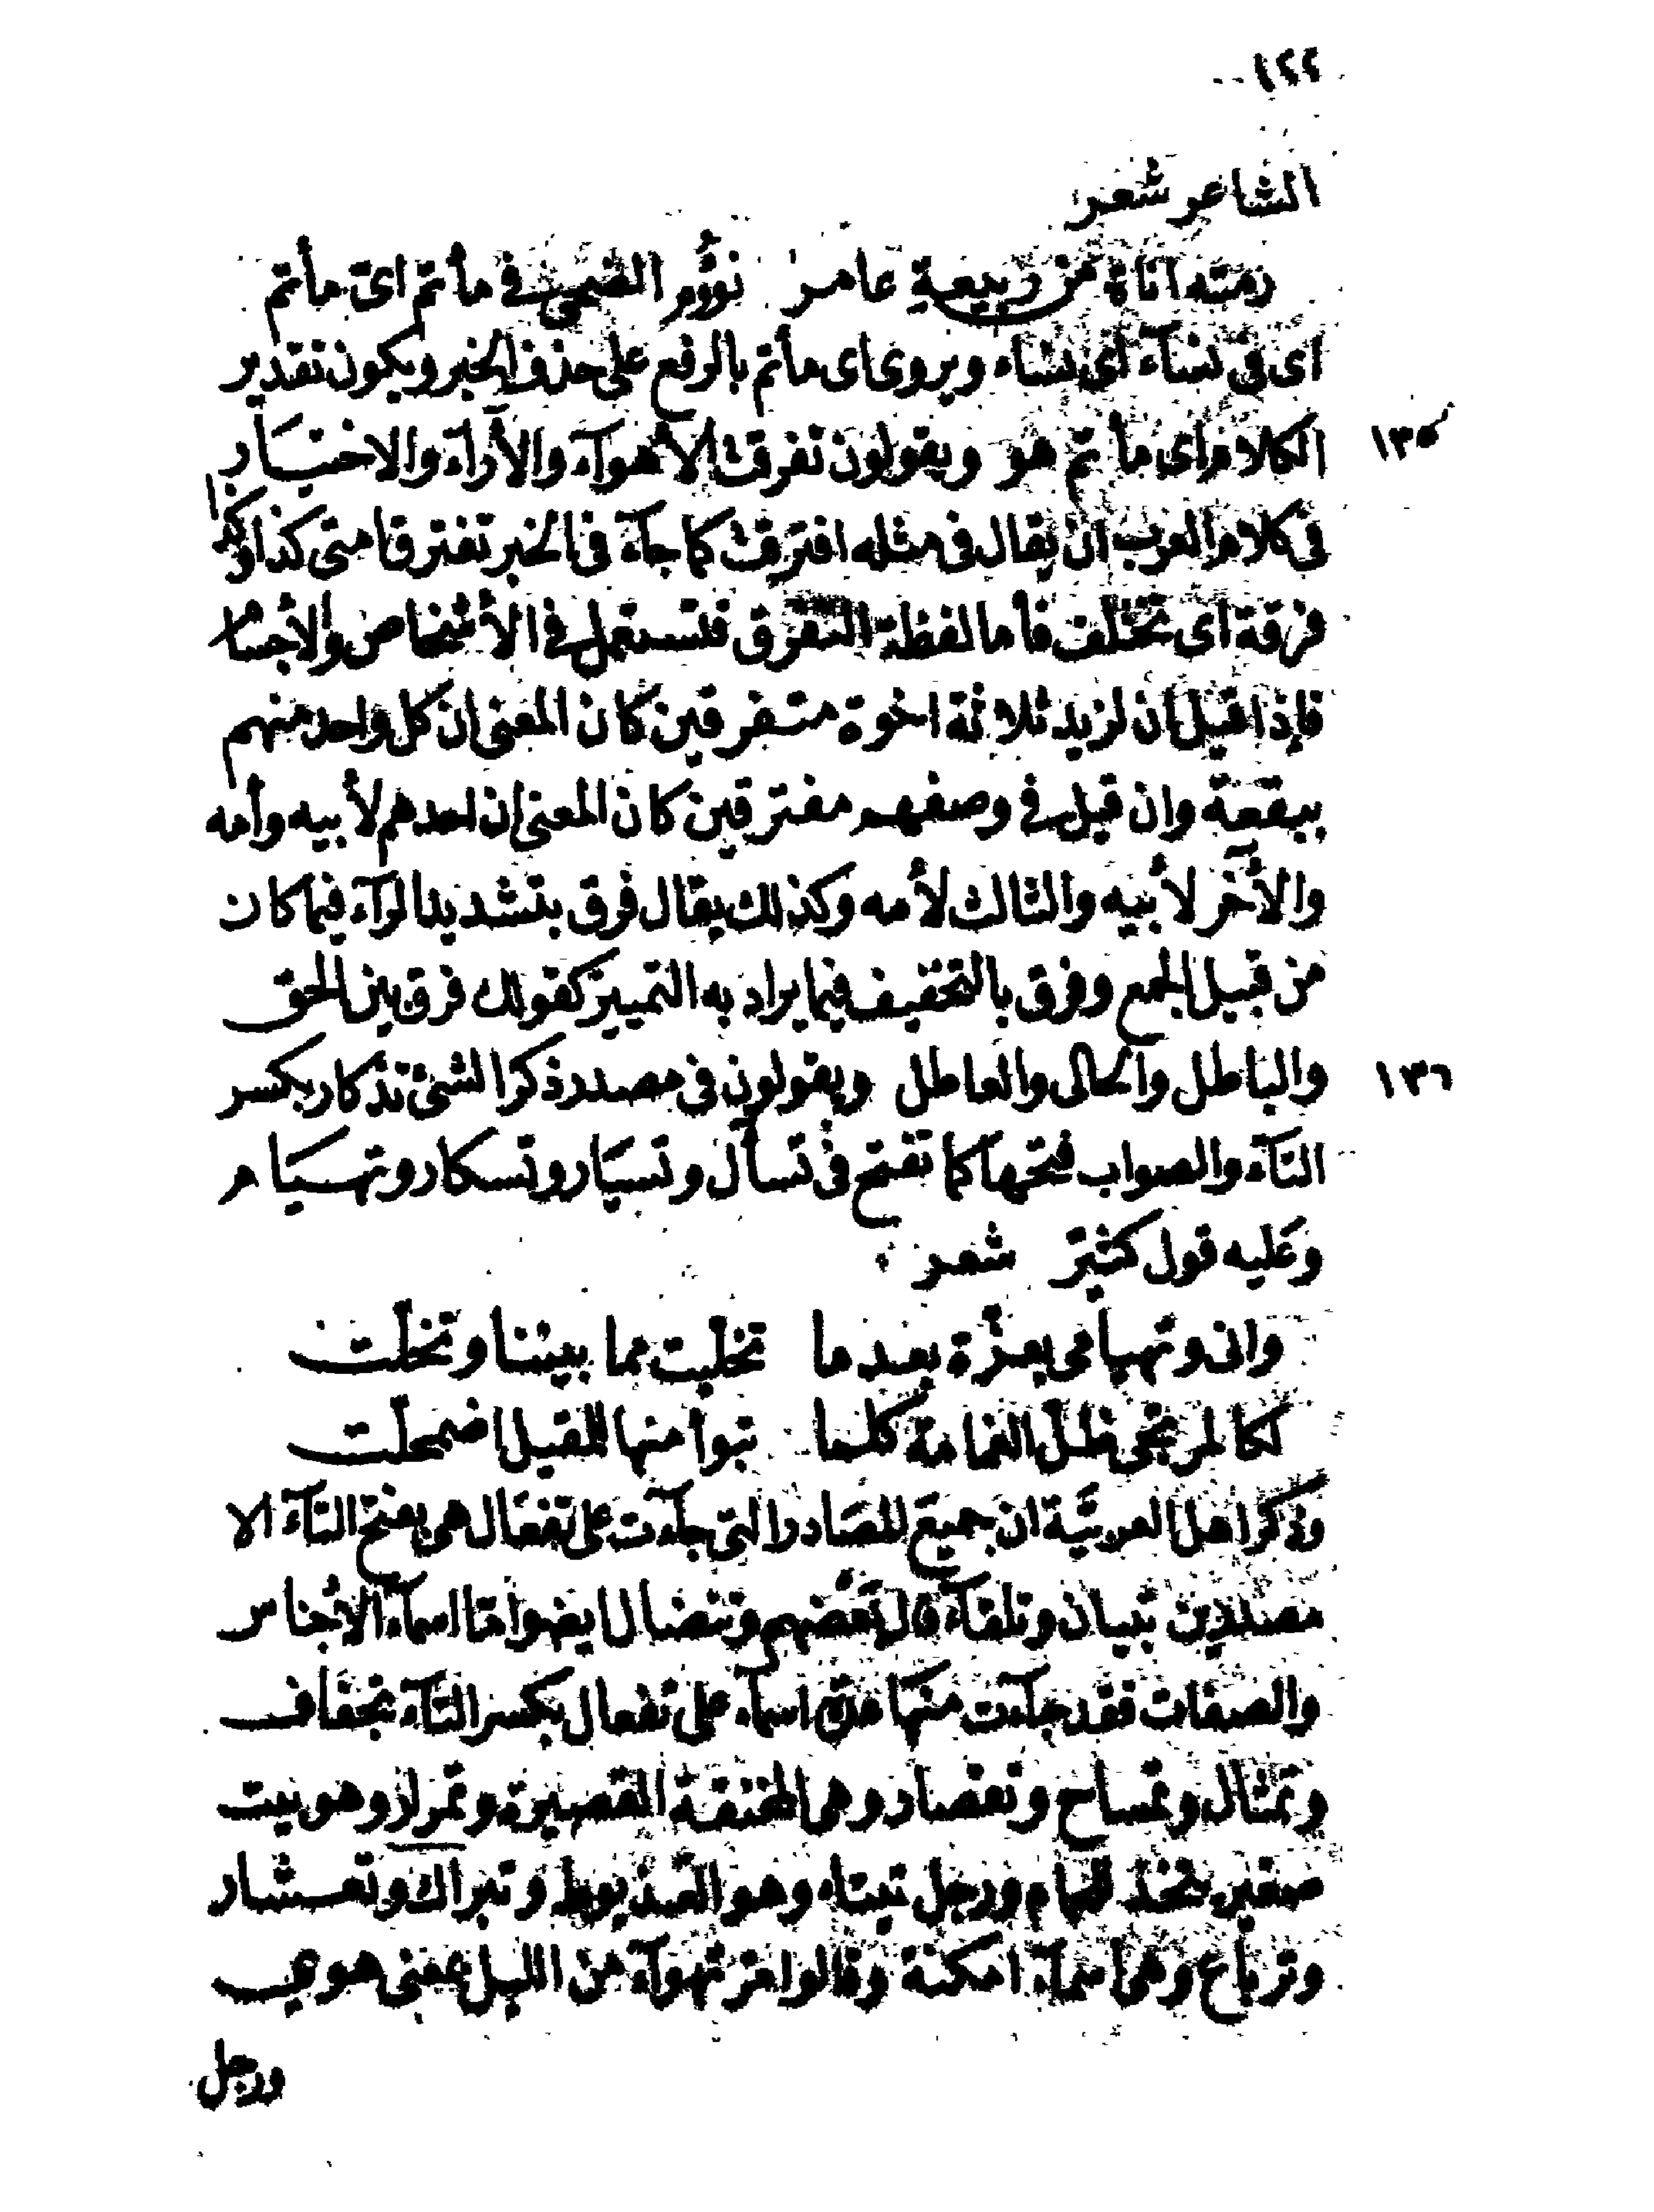 ١٢٢
الشاعر شعر
رمته اناة من ربيعة عامر نؤوم الضحى في مأتم اىّ مأتم
اى فى نسآء اى نساء ويروى اى مأتم بالرفع على حذف الخبر ويكون تقدير
١٣٥ الكلام اى مأتم هو ويقولون تفرقت الأهوآء والأرآء والاختيار
فى كلام العرب ان يقال فى مثله افترقت كما جآء فى الخبر تفترق امتى كذا وكذا
فرقة اى تختلف فأما لفظة التفرق فتستعمل فى الأشخاص والأجسام
فإذا قيل ان لزيد ثلاثة اخوة متفرقين كان المعنى ان كل واحد منهم
ببقعة وان قيل فى وصفهم مفترقين كان المعنى ان احدهم لأبيه وأمه
والآخر لأبيه والثالث لأمه وكذلك يقال فرق بتشديد الرآء فيما كان
من قبيل الجمع وفرق بالتخفيف فيما يراد به التمييز كقولك فرق بين الحق
١٣٦ والباطل والحالى والعاطل ويقولون فى مصدر ذكر الشئ تذكار بكسر
التآء والصواب فتحها كما تفتح فى تسأل وتسيار وتسكار وتهيام
وعليه قول كثيّر شعر
وانى وتهيامى بعزّة بعد ما تخلّيت مما بيننا وتخلّت
لكالمرتجى ظلّ الغمامة كلما تبوا منها للمقيل اضمحلّت
وذكر اهل العربيّة ان جميع المصادر التى جآءت على تفعال هى بفتح التآء الا
مصدرين تبيان وتلقآء قال بعضهم وتنضال ايضا واما اسمآء الأجناس
والصفات فقد جآءت منها عدة اسمآء على تفعال بكسر التآء تجفاف
وتمثال وتمساح وتقصار وهى المخنقة القصيرة وتمراد وهو بيت
صغير يتخذ للحمام ورجل تيتاء وهو العذيوط وتبراك وتعشار
وترباع وهى اسمآء امكنة وقالوا مر تهوآء من الليل بمعنى هوىّ
ورجل